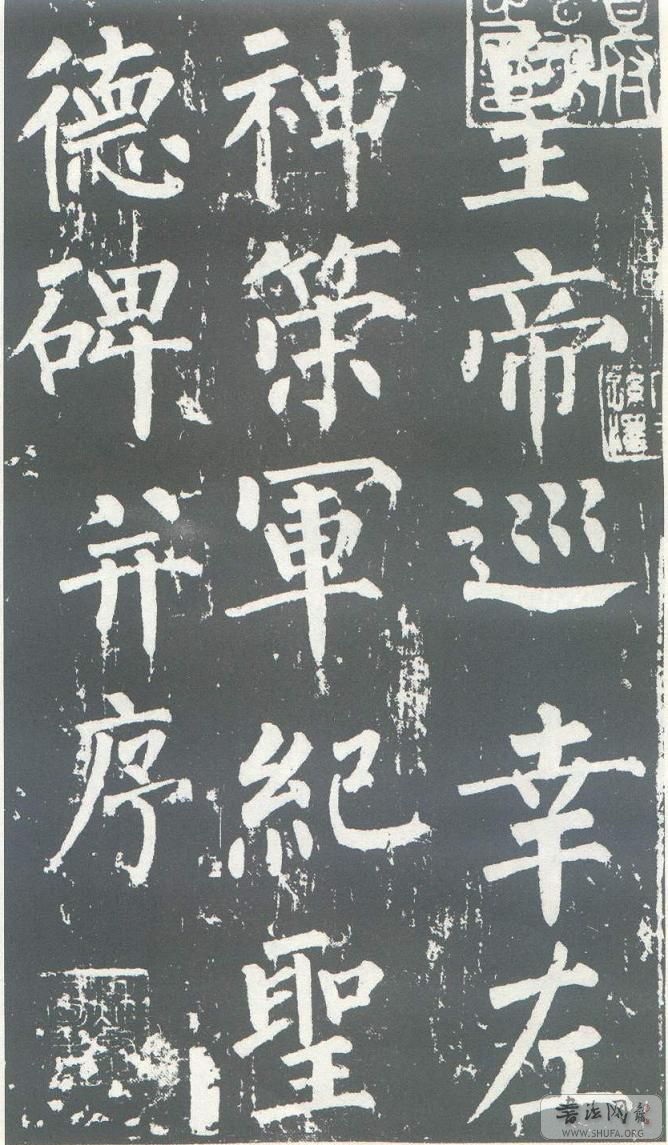 皇帝巡幸左
神策軍紀聖
德碑并序
書法网
WWW.SHUFA.ORG